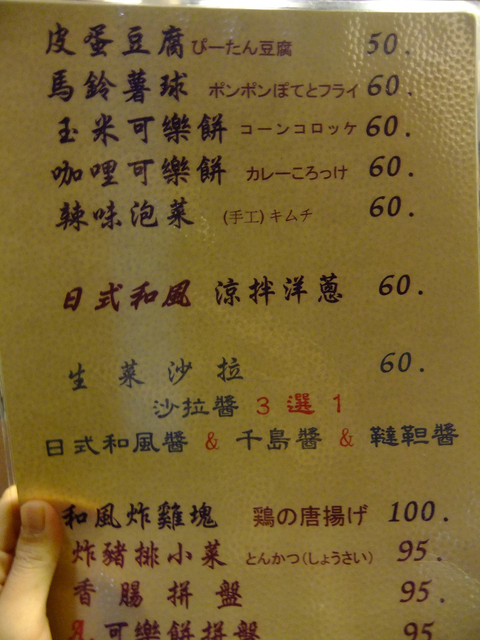 皮蛋豆腐 ぴーたん豆腐 50.
馬鈴薯球 ポンポンぽてとフライ 60.
玉米可樂餅 コーンコロッケ 60.
咖哩可樂餅 カレーころっけ 60.
辣味泡菜 (手工)キムチ 60.
日式和風 涼拌洋蔥 60.
生菜沙拉 60.
沙拉醬 3 選 1
日式和風醬 & 千島醬 & 韃靼醬
和風炸雞塊 鶏の唐揚げ 100.
炸豬排小菜 とんかつ(しょうさい) 95.
香腸拼盤 95.
可樂餅拼盤 95.